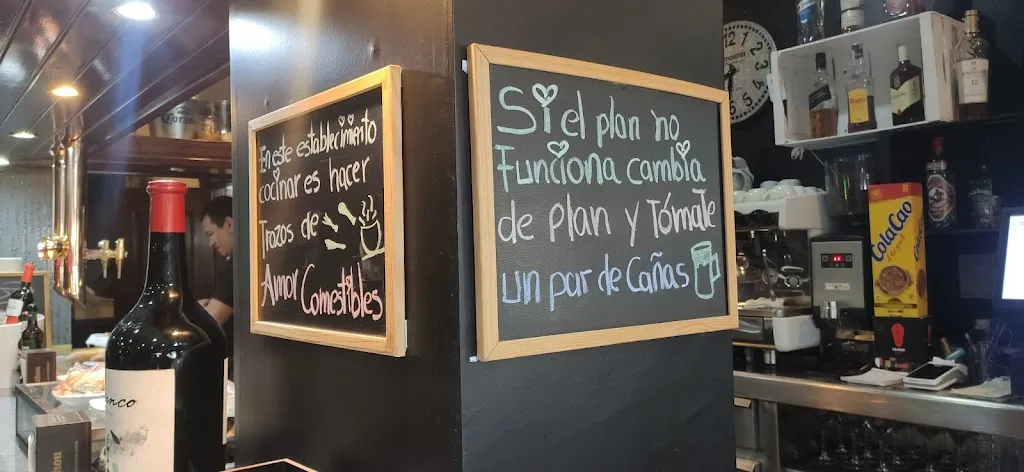 En este establecimiento
cocinar es hacer
Trozos de
Amor Comestibles
Si el plan no
Funciona cambia
de plan y Tómate
un par de Cañas
ColaCao